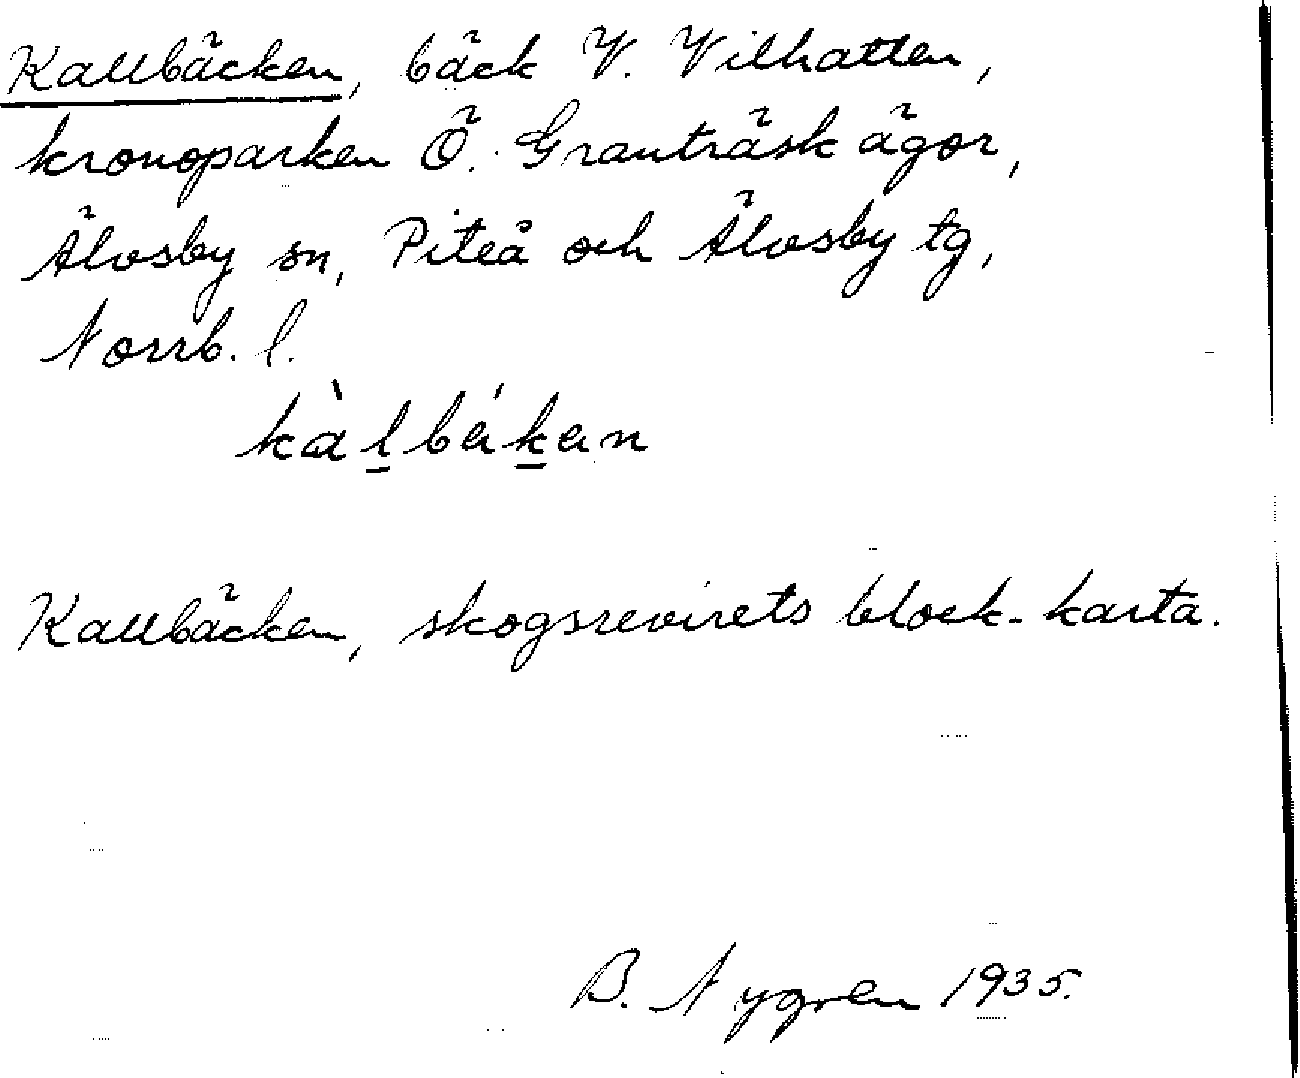 Kallbäcken, bäck V. Vilhatten,
kronoparken Ö. Granträsk ägor,
Älvsby sn, Piteå och Älvsby tg,
Norrb. l.
kàlbákan
Kallbäcken, skogsrevirets block-karta.
B. Nygren 1935.